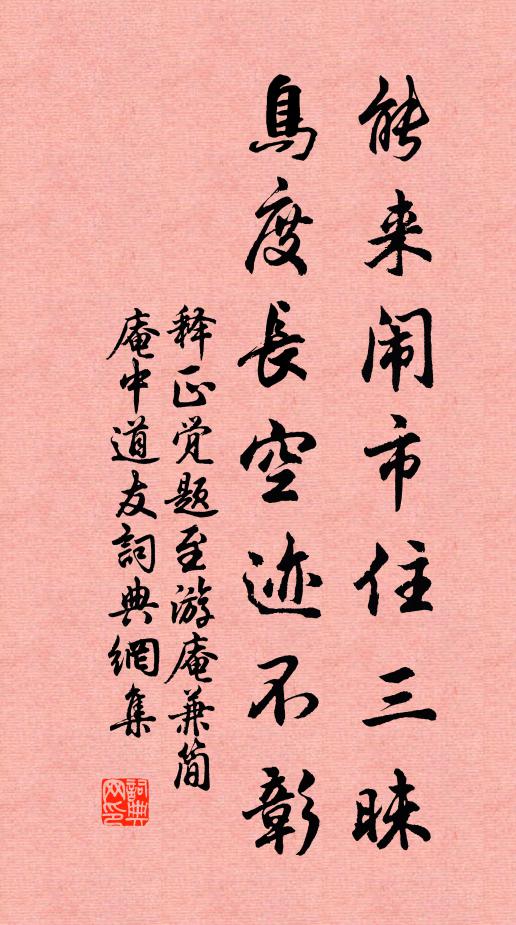 能来闹市住三昧
鳥度長空迹不彰
释正覚题至游庵兼简
庵中道友詞典網集
詞典
网印